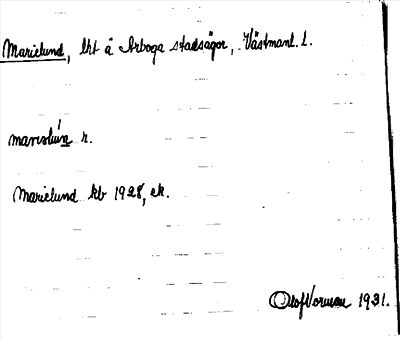 Marielund, lht å Arboga stadsägor, Västmanl. l.
r.
Marielund kb 1928, ek.
Olof Vorman 1931.